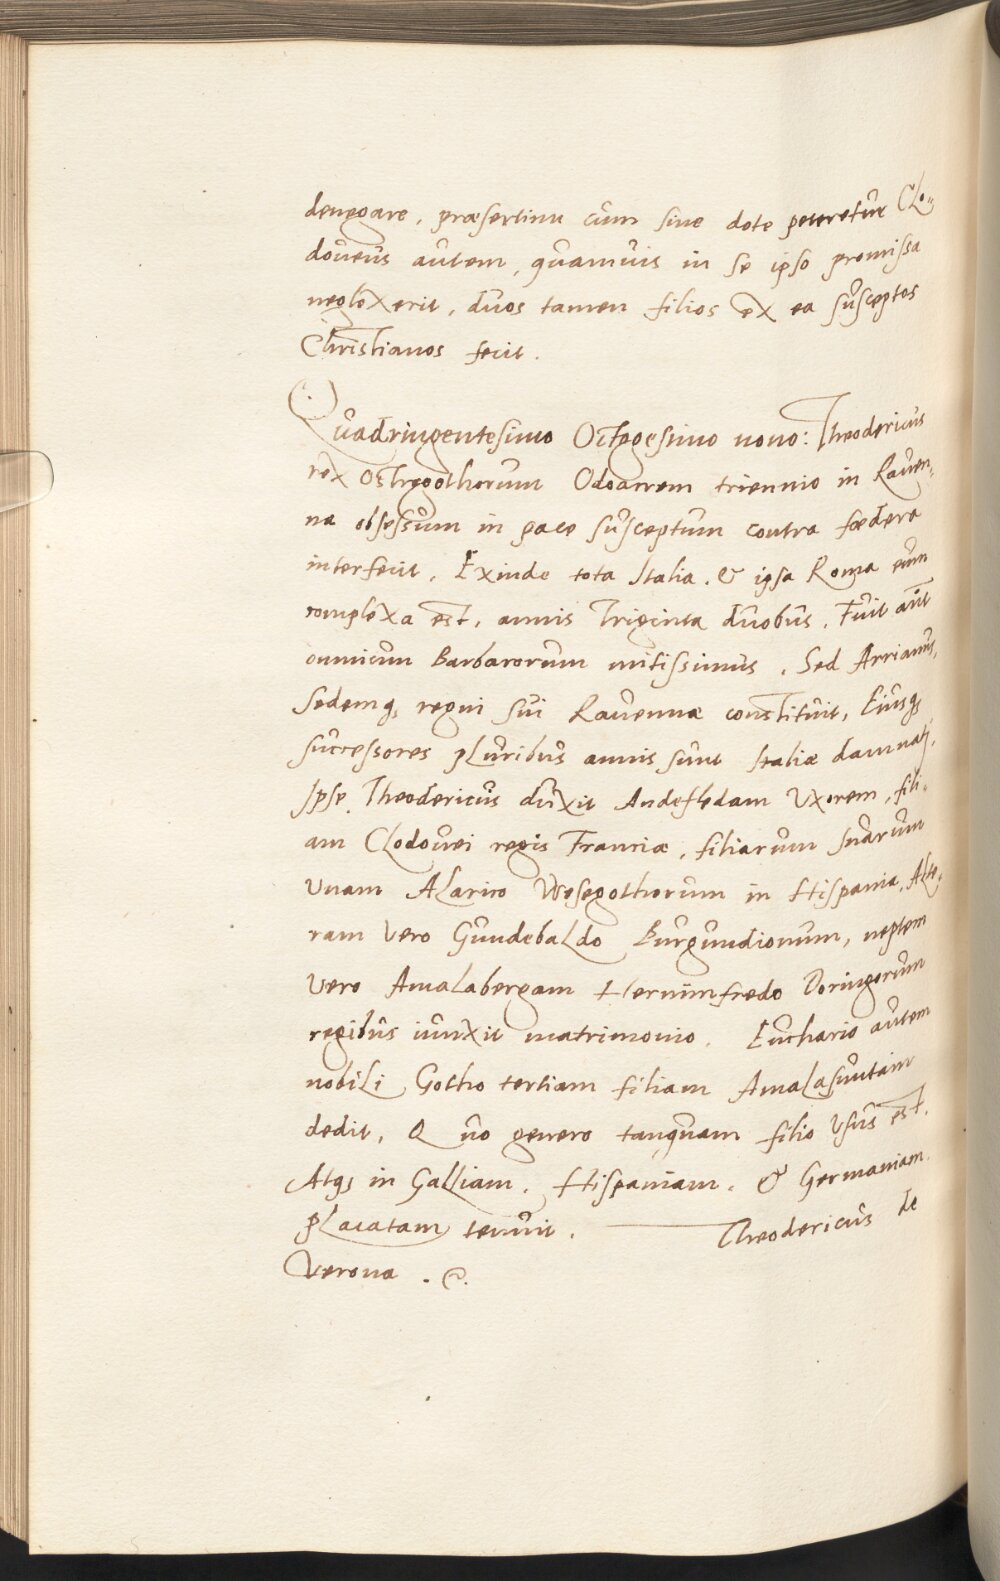 denegare, præsertim cum sine dote peteretur Clo-
doveus autem, quamvis in se ipso promissa
neglexerit, duos tamen filios ex ea susceptos
Christianos fecit.
Quadringentesimo Octogesimo nono: Theodericus
rex Ostrogothorum Odoacrem triennio in Raven-
na obsessum in pace susceptum contra fœdera
interfecit. Exinde tota Italia. & ipsa Roma eum
complexa est, annis Triginta duobus. Fuit aut
omnium Barbarorum mitissimus. Sed Arrianus,
Sedemq regni sui Ravennæ constituit, Eiusq
successores pluribus annis sunt Italiæ
Ipse Theodericus duxit Andefledam Uxorem, fili-
am Clodovei regis Franciæ, filiarum suarum
Unam Alarico Wesegothorum in Hispania, Alte-
ram Vero Gundebaldo Burgundionum, neptem
Vero Amalabergam Hernimfredo Doringorum
regibus iunxit matrimonio. Euchario autem
nobili Gotho tertiam filiam Amalasuntam
dedit, Quo genero tanquam filio Usus est.
Atq in Galliam. Hispaniam. & Germaniam
placatam tenuit. Theodericus de
Verona.